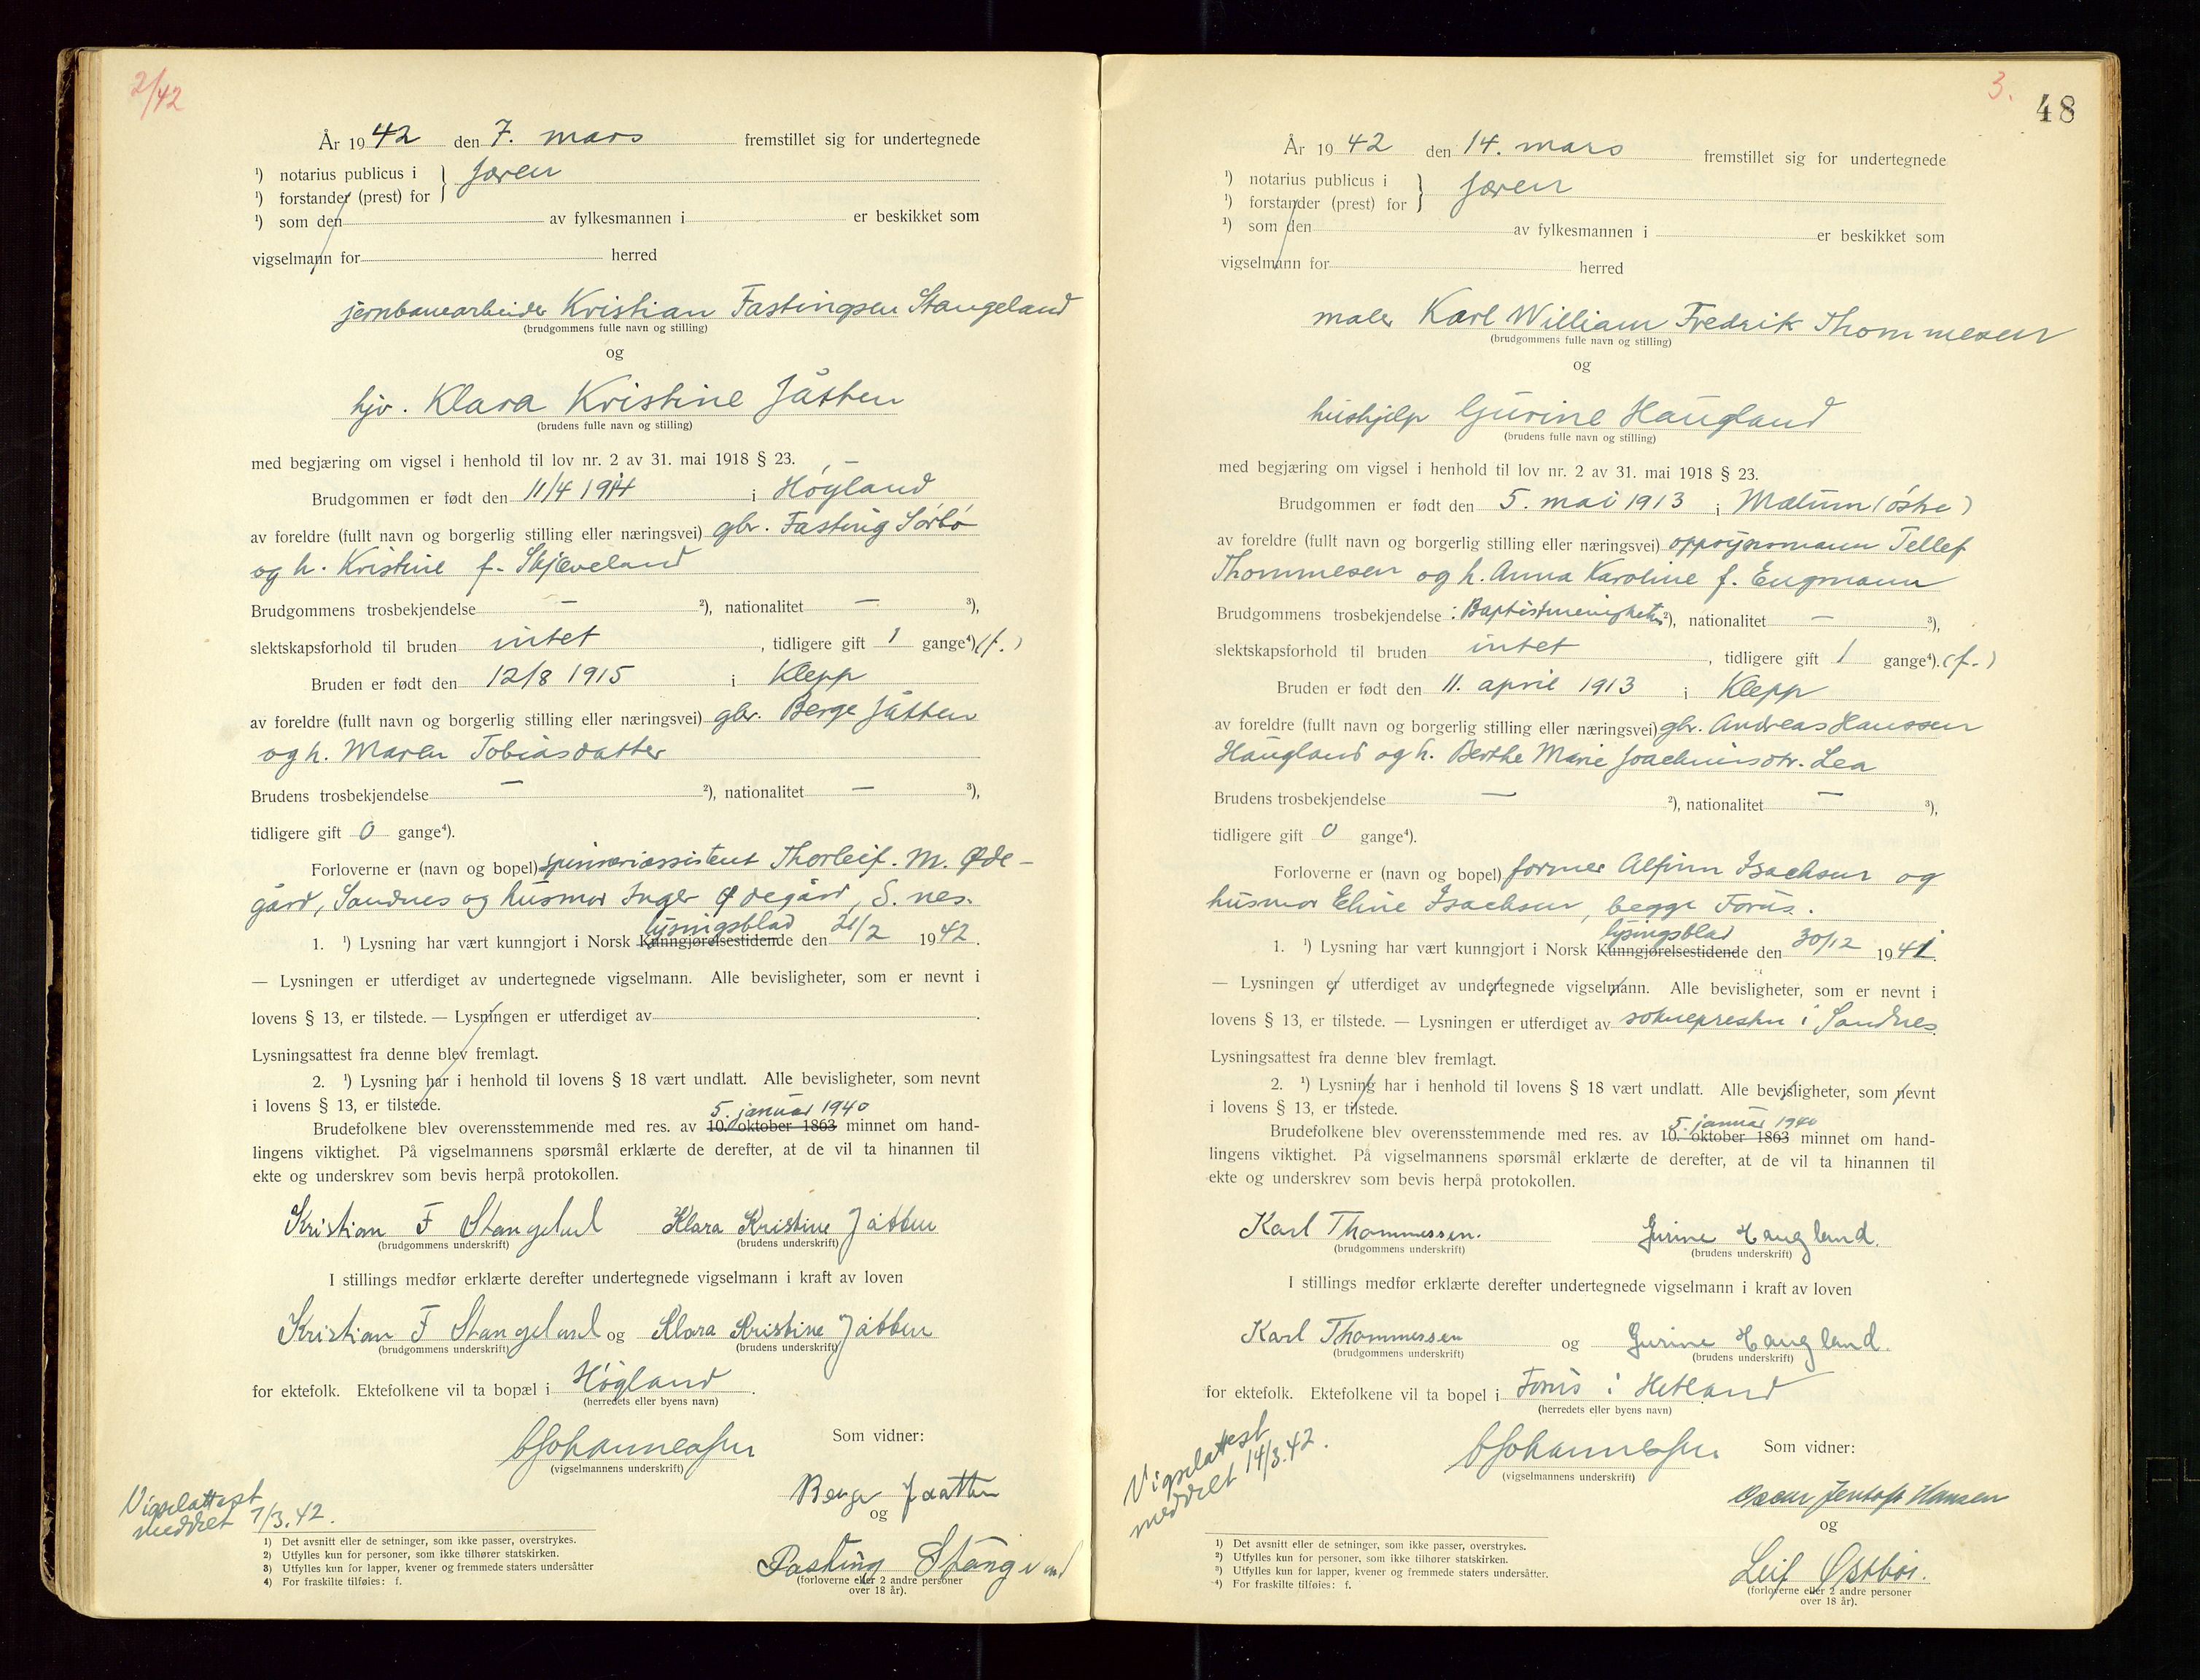 2/42
År 1942 den 7. mars fremstillet sig for undertegnede
¹) notarius publicus i } Jæren
¹) forstander (prest) for
¹) som den av fylkesmannen i er beskikket som
vigselmann for herred
jernbanearbeider Kristian Fastingsen Stangeland
(brudgommens fulle navn og stilling)
og
hjv. Klara Kristine Jåtten
(brudens fulle navn og stilling)
med begjæring om vigsel i henhold til lov nr. 2 av 31. mai 1918 § 23.
Brudgommen er født den 11/4 1914 i Høyland
av foreldre (fullt navn og borgerlig stilling eller næringsvei) gbr. Fasting Sørbø
og h. Kristine f. Skjæveland
Brudgommens trosbekjendelse — ²), nationalitet — ³),
slektskapsforhold til bruden intet, tidligere gift 1 gange⁴) (f.)
Bruden er født den 12/8 1915 i Klepp
av foreldre (fullt navn og borgerlig stilling eller næringsvei) gbr. Berge Jåtten
og h. Maren Tobiasdatter
Brudens trosbekjendelse — ²), nationalitet — ³),
tidligere gift 0 gange⁴).
Forloverne er (navn og bopel) spinneriassistent Thorleif. M. Øde-
gård, Sandnes og husmor Inger Ødegård, S. nes.
lysingsblad
1. ¹) Lysning har vært kunngjort i Norsk Kunngjørelsestidende den 21/2 1942.
— Lysningen er utferdiget av undertegnede vigselmann. Alle bevisligheter, som er nevnt i
lovens § 13, er tilstede. — Lysningen er utferdiget av .
Lysningsattest fra denne blev fremlagt.
2. ¹) Lysning har i henhold til lovens § 18 vært undlatt. Alle bevisligheter, som nevnt
i lovens § 13, er tilstede.
5. januar 1940
Brudefolkene blev overensstemmende med res. av 10. oktober 1863 minnet om hand-
lingens viktighet. På vigselmannens spørsmål erklærte de derefter, at de vil ta hinannen til
ekte og underskrev som bevis herpå protokollen.
Kristian F Stangeland Klara Kristine Jåtten
(brudgommens underskrift) (brudens underskrift)
I stillings medfør erklærte derefter undertegnede vigselmann i kraft av loven
Kristian F Stangeland og Klara Kristine Jåtten
(brudgommens underskrift) (brudens underskrift)
for ektefolk. Ektefolkene vil ta bopæl i Høgland.
(herredets eller byens navn)
Johannessen Som vidner:
(vigselmannens underskrift)
Berge Jaatten
og
Fasting Stangeland
(forloverne eller 2 andre personer
over 18 år).
Vigselattest
meddelt 7/3.42.
1) Det avsnitt eller de setninger, som ikke passer, overstrykes.
2) Utfylles kun for personer, som ikke tilhører statskirken.
3) Utfylles kun for lapper, kvener og fremmede staters undersåtter
4) For fraskilte tilføies: f.
3.
48
År 1942 den 14. mars fremstillet sig for undertegnede
¹) notarius publicus i } Jæren
¹) forstander (prest) for
¹) som den av fylkesmannen i er beskikket som
vigselmann for herred
maler Karl William Fredrik Thommesen
(brudgommens fulle navn og stilling)
og
hushjelp Gurine Haugland
(brudens fulle navn og stilling)
med begjæring om vigsel i henhold til lov nr. 2 av 31. mai 1918 § 23.
Brudgommen er født den 5. mai 1913 i
av foreldre (fullt navn og borgerlig stilling eller næringsvei) oppsynsmann Tellef
Thommesen og h. Anna Karoline f. Engmann
Brudgommens trosbekjendelse: Baptistmenigheten ²), nationalitet — ³),
slektskapsforhold til bruden intet, tidligere gift 1 gange⁴). (f.)
Bruden er født den 11. april 1913 i Klepp
av foreldre (fullt navn og borgerlig stilling eller næringsvei) gbr. Andreas Hanssen
Haugland og h. Berthe Marie Joachimsdtr. Lea
Brudens trosbekjendelse — ²), nationalitet — ³),
tidligere gift 0 gange⁴).
Forloverne er (navn og bopel) former Alfinn Isachsen og
husmor Eline Isachsen, begge Forus.
lysingsblad
1. ¹) Lysning har vært kunngjort i Norsk Kunngjørelsestidende den 30/12 1941.
— Lysningen er utferdiget av undertegnede vigselmann. Alle bevisligheter, som er nevnt i
lovens § 13, er tilstede. — Lysningen er utferdiget av soknepresten i Sandnes.
Lysningsattest fra denne blev fremlagt.
2. ¹) Lysning har i henhold til lovens § 18 vært undlatt. Alle bevisligheter, som nevnt
i lovens § 13, er tilstede.
5. januar 1940
Brudefolkene blev overensstemmende med res. av 10. oktober 1863 minnet om hand-
lingens viktighet. På vigselmannens spørsmål erklærte de derefter, at de vil ta hinannen til
ekte og underskrev som bevis herpå protokollen.
Karl Thommessen. Gurine Haugland.
(brudgommens underskrift) (brudens underskrift)
I stillings medfør erklærte derefter undertegnede vigselmann i kraft av loven
Karl Thommessen og Gurine Haugland.
(brudgommens underskrift) (brudens underskrift)
for ektefolk. Ektefolkene vil ta bopel i Forus i Hetland
(herredets eller byens navn)
Johannessen Som vidner:
(vigselmannens underskrift)
Oscar Jentoft Hansen
og
Leif Østbø.
(forloverne eller 2 andre personer
over 18 år).
Vigselattest
meddelt 14/3.42.
1) Det avsnitt eller de setninger, som ikke passer, overstrykes.
²) Utfylles kun for personer, som ikke tilhører statskirken.
³) Utfylles kun for lapper, kvener og fremmede staters undersåtter.
⁴) For fraskilte tilføies: f.